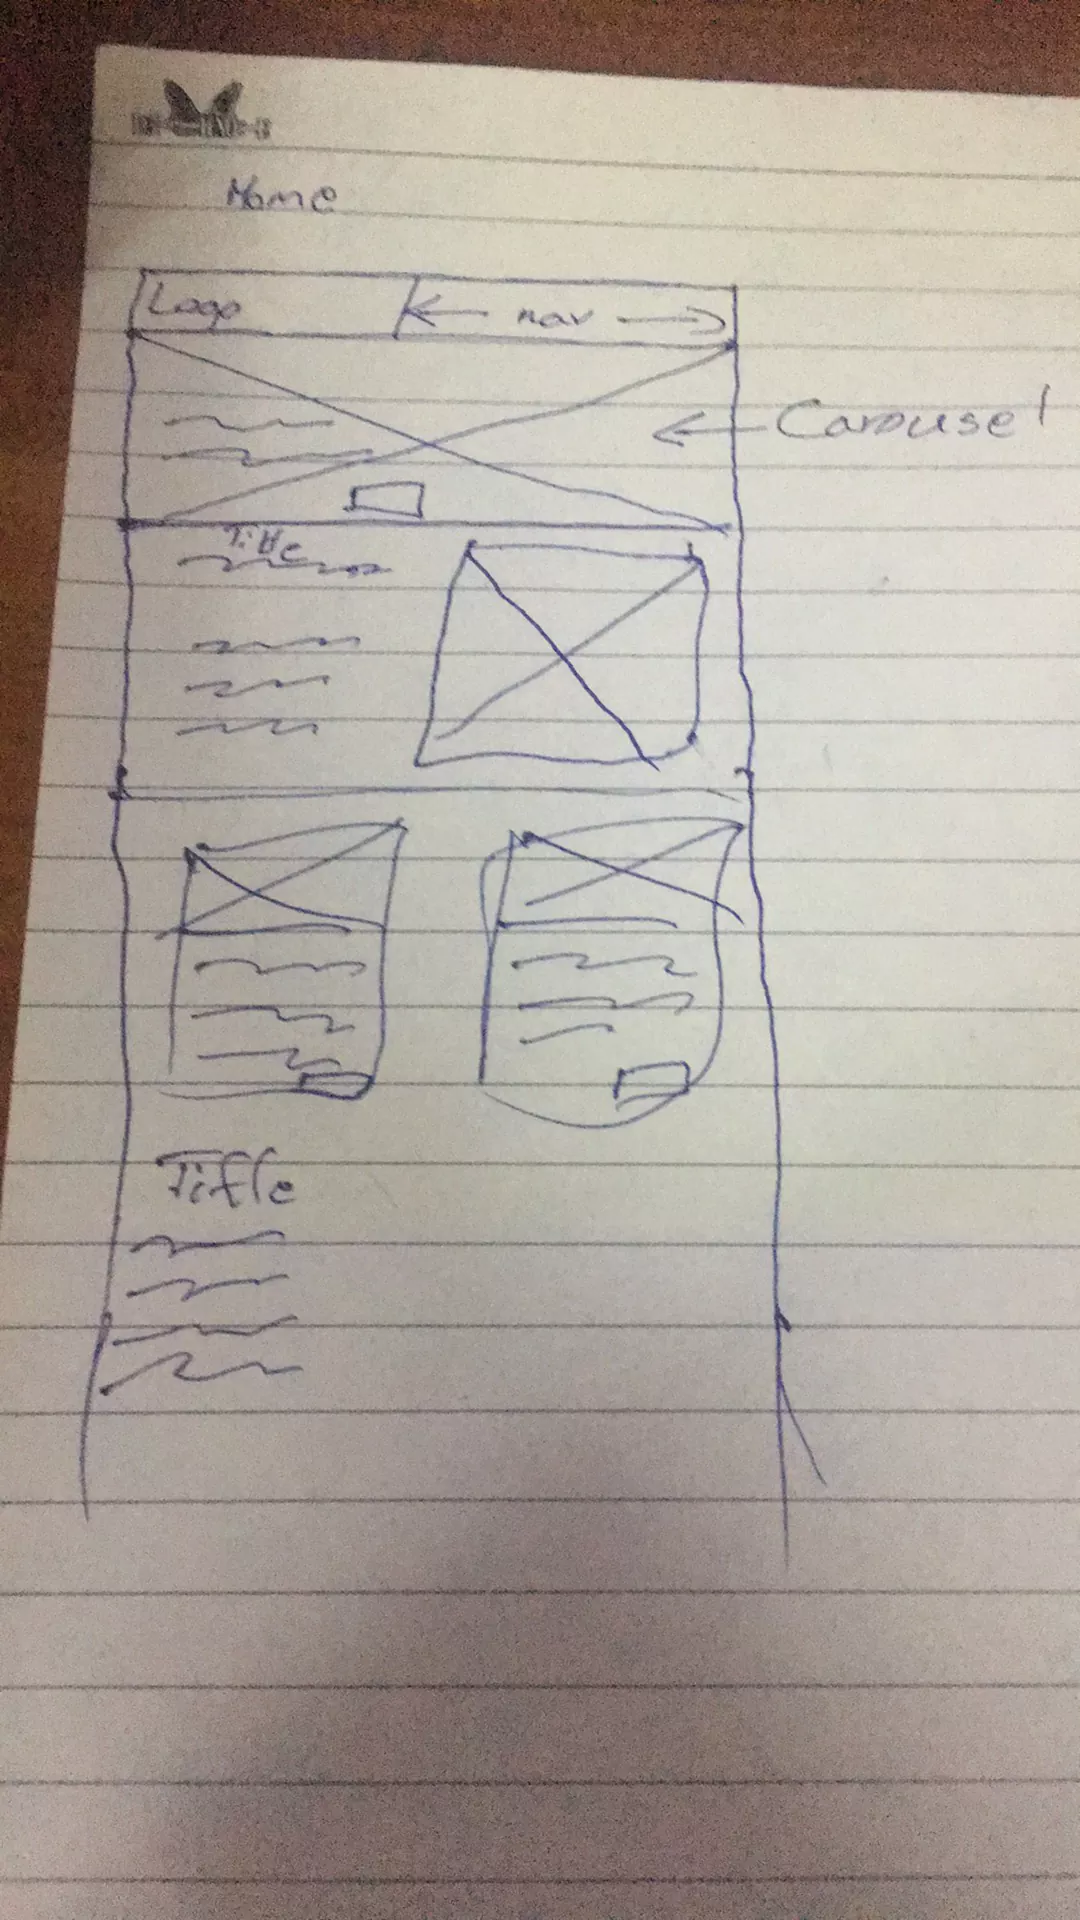 Home
Logo
nav
Carousel
Title
Title